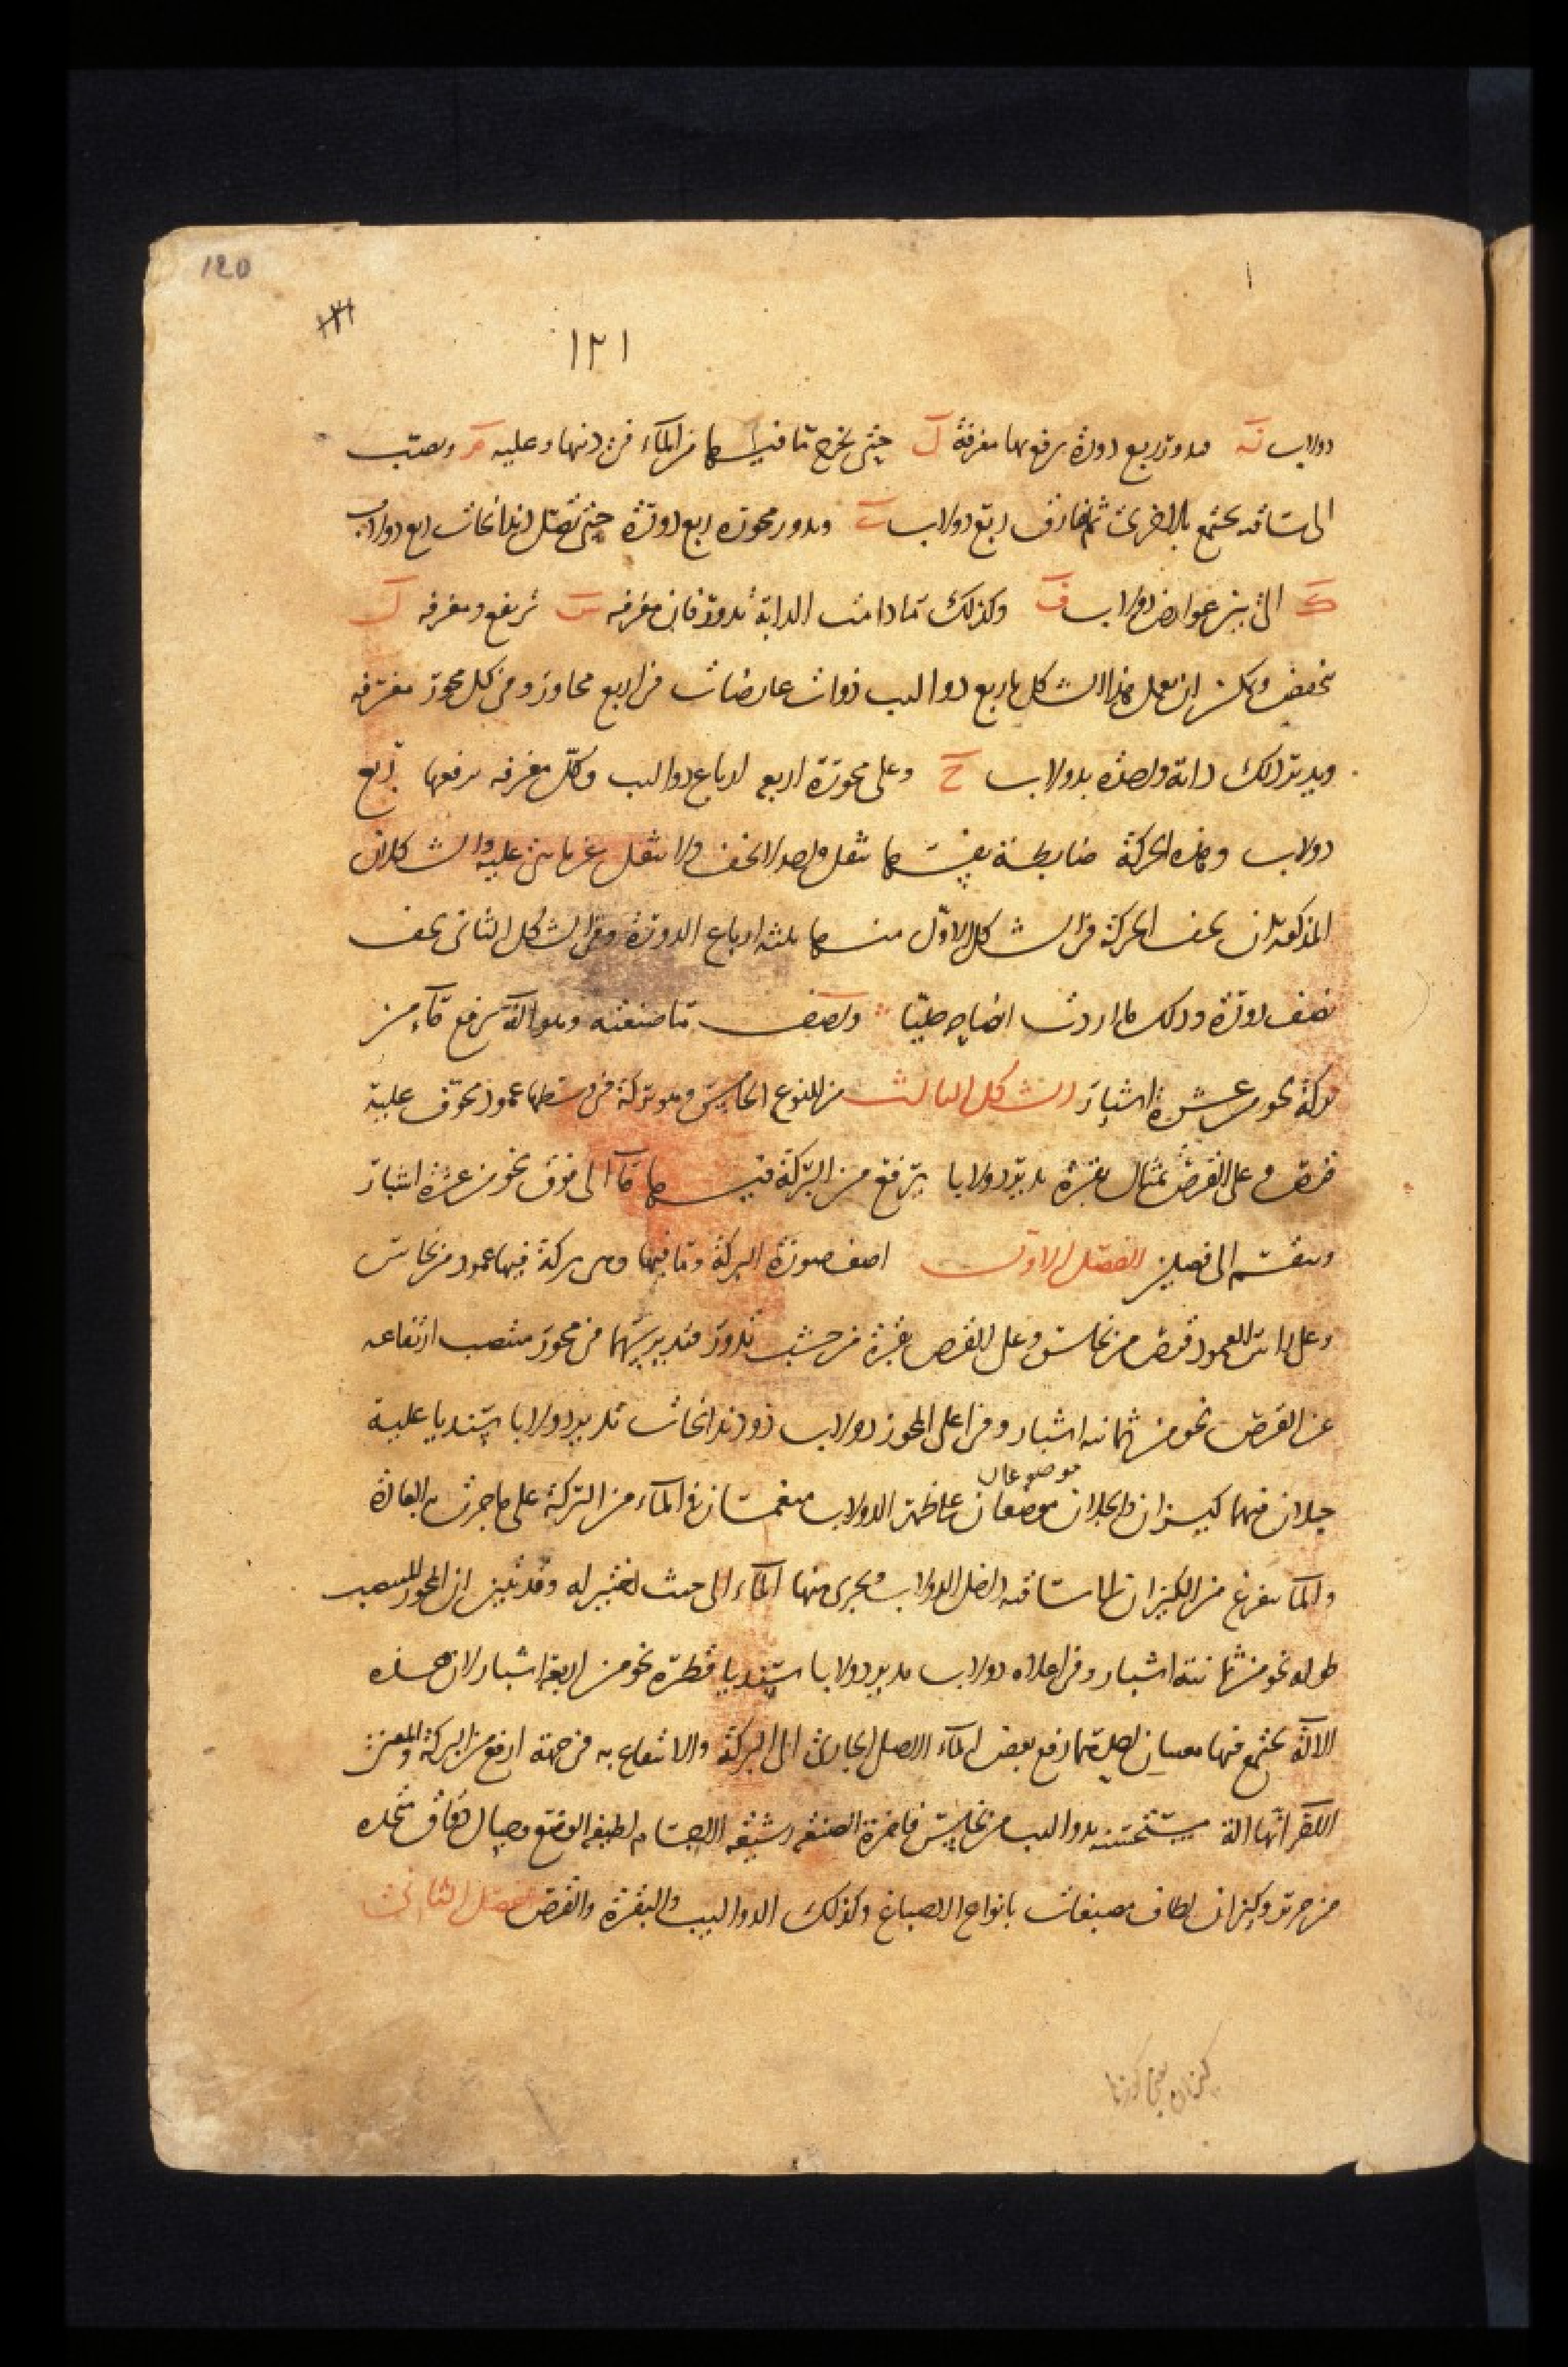 120
١٢١
دولاب ه ويدور ربع دورة يرفع بها مغرفة ل حتى يخرج ما فيها من الماء في ذنبها وعليه م ويصب
الى ساقيه يجتمع بالاخرى ثم تفارق ربع دولاب ويدور محوره ربع دورة حتى تصل دندانجات ربع دولاب
الى بين عوارض دولاب ف وكذلك ما دامت الدابة تدور فان مغرفه س ترتفع ومغرفه ل
تنخفض ويمكن ان يعمل هذا الشكل باربع دواليب ذوات عارضات في اربع محاور وفي كل محور مغرفه
ويدير ذلك دابة واحدة بدولاب ح وعلى محوره اربعه ارباع دواليب وكل مغرفه يرفعها ربع
دولاب وهذه الحركة ضابطة نفسها بثقل واحد لا تخف ولا تثقل عما هي عليه والشكلان
المذكوران تخف الحركة في الشكل الاول منهما ثلثه ارباع الدورة وفي الشكل الثاني تخف
نصف دورة وذلك ما اردت ايضاحه جليا واصف ما صنعته وهو الة ترفع ماء من
بركة نحو من عشرة اشبار الشكل الثالث من النوع الخامس وهو بركة في وسطها عمود مجوف عليه
قرص وعلى القرص تمثال بقرة يدير دولابا يرتفع من البركة فيها ماء الى فوق نحو من عشرة اشبار
وينقسم الى فصلين الفصل الاول اصف صورة البركة وما فيها وهي بركة فيها عمود من نحاس
وعلى راس العمود قرص من نحاس وعلى القرص بقرة من خشب تدور فتدير سهما في محور منتصب ارتفاعه
عن القرص نحو من ثمانيه اشبار وفي اعلى المحور دولاب ذو دندانجات تدير دولابا سنديا عليه
موضوعان
حبلان فيهما كيزان والحبلان موضعان على ظهر الدولاب منغمسان في الماء من البركة على ما جرت به العادة
والماء يفرغ من الكيزان الى ساقيه داخل الدولاب ويجري منها الماء الى حيث اختير له وقد تبين ان المحور المنتصب
طوله نحو من ثمانية اشبار وفي اعلاه دولاب يدير دولابا سنديا قطره نحو من اربعة اشبار لان هذه
الالة يجتمع فيها معنيان احدهما رفع بعض الماء الاصل الجاري الى البركة والانتفاع به في جهة ارفع من البركة والمعنى
الاخر انها الة مستحسنه بدواليب من نحاس فاخرة الصنعه رشيقه الاجسام لطيفه الوضع وحبال دقاق متخذه
من حرير وكيزان لطاف مصبغات بانواع الاصباغ وكذلك الدواليب والبقرة والقرص الفصل الثاني